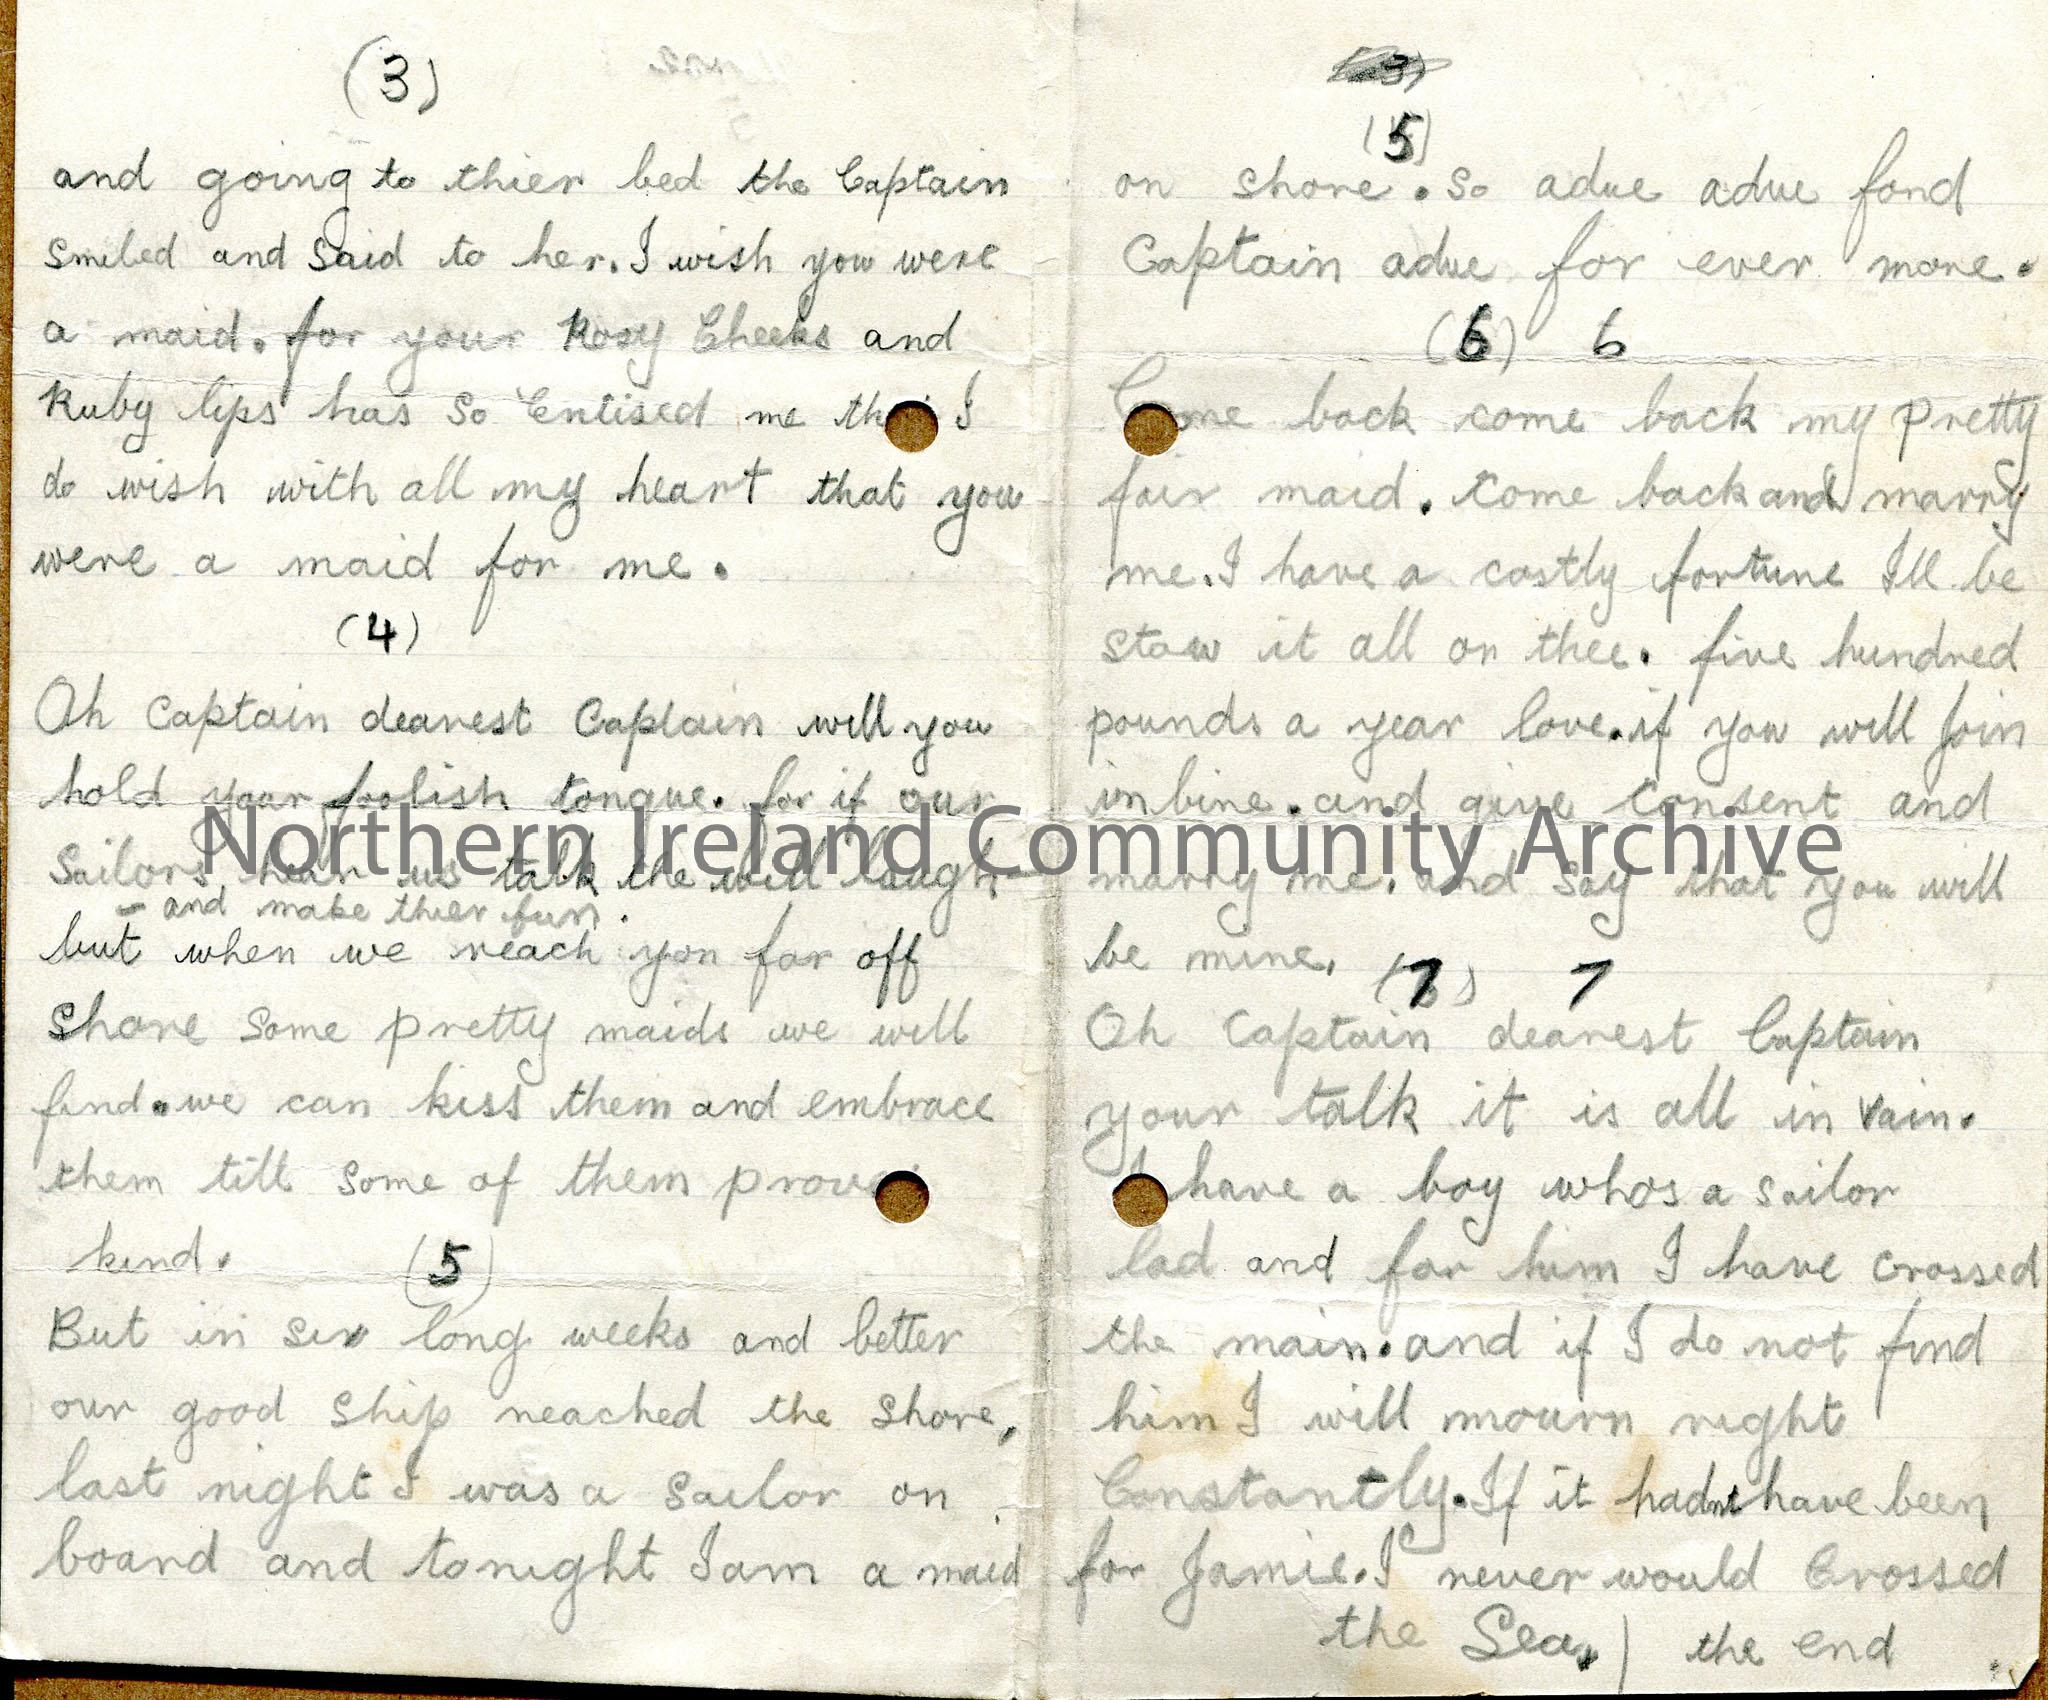 (3)
and going to thier bed the Captain
smiled and said to her. I wish you were
a maid. for your Rosy Cheeks and
Ruby lips has so Entised me that I
do wish with all my heart that you
were a maid for me.
(4)
Oh Captain dearest Captain will you
hold your foolish tongue. for if our
Sailors hear us talk the will laugh
- and make thier fun.
but when we reach yon far off
shore some pretty maids we will
find. we can kiss them and embrace
them till some of them prove
kind.
(5)
But in six long weeks and better
our good ship reached the shore,
last night I was a sailor on
board and tonight I am a maid
(3)
(5)
on shore. so adue adue fond
Captain adue for ever more.
(6) 6
Come back come back my pretty
fair maid. Come back and marry
me. I have a costly fortune Ill be
stow it all on thee. five hundred
pounds a year love. if you will Join
inbine. and give Consent and
marry me. and say that you will
be mine.
(7) 7
Oh Captain dearest Captain
your talk it is all in vain.
I have a boy whos a sailor
lad and for him I have crossed
the main. and if I do not find
him I will mourn right
Constantly. If it hadnt have been
for Jamie. I never would Crossed
the Sea.) the end
Northern Ireland Community Archive